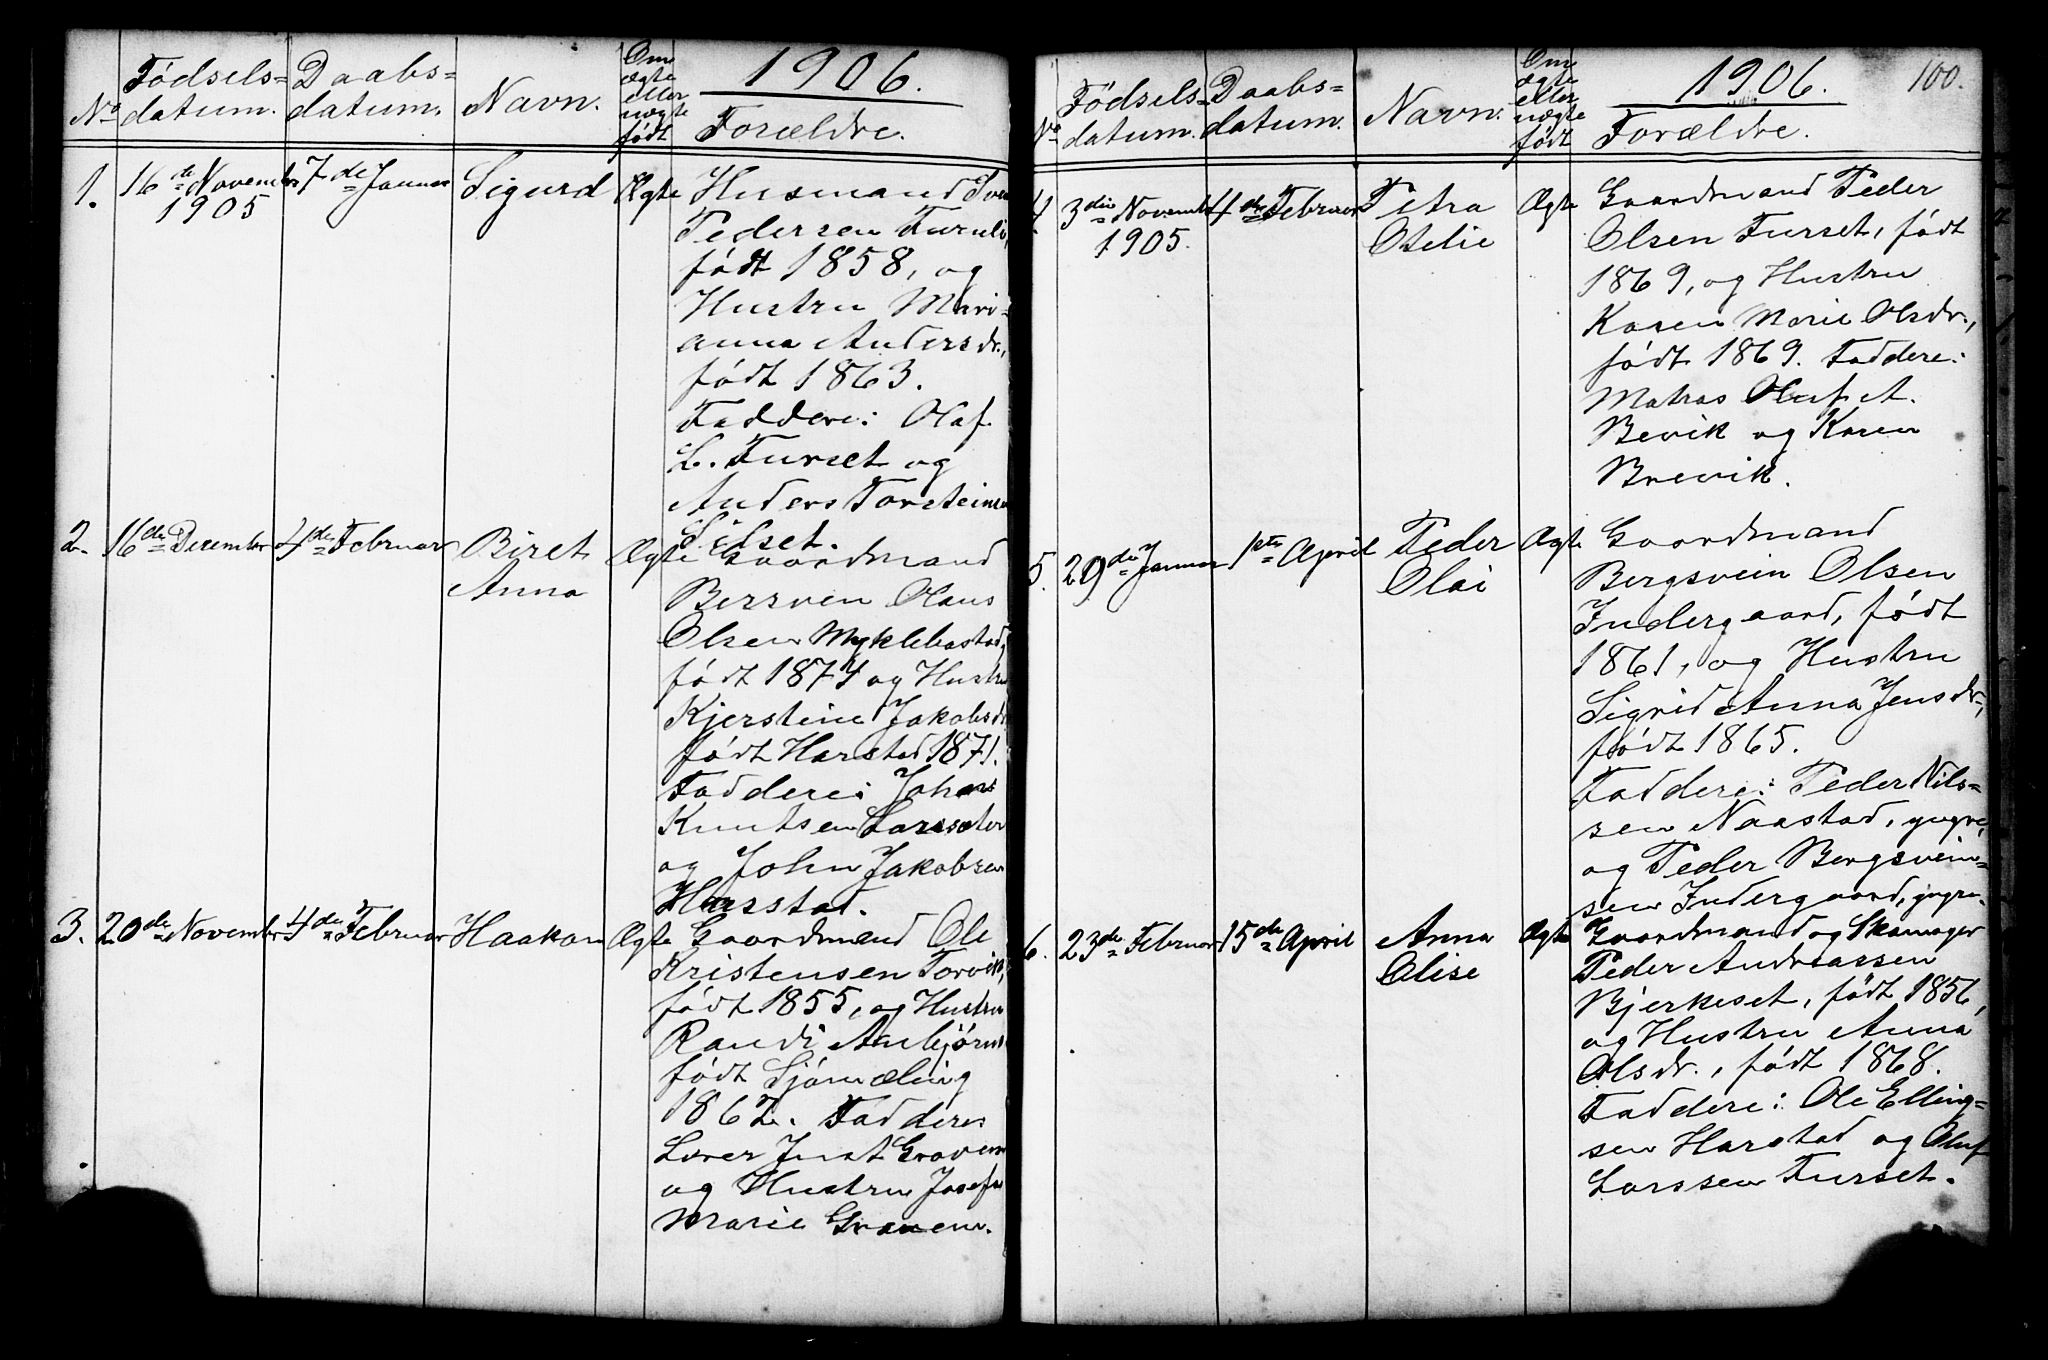 1906.
No Fødsels=datum. Daabs=datum. Navn. Om ægte eller uægte født Forældre.
1. 16de November 1905 7de Januar Sigurd Ægte Husmand
Pedersen Furuli,
født 1858, og
Hustru Mari=
anna Andersdr.,
født 1863.
Faddere: Olaf
L. Furset og
Anders Torsteinsen
Silset.
2. 16de December 4de Februar Biret Anna Ægte Gaardmand
Bersven Olaus
Olsen Myklebostad,
født 1874 og Hustru
Kjerstine Jakobsdr
født Harstad 1871.
Faddere: Johans
Knutsen Larsseter
og John Jakobsen
Harstad.
3. 20de November 4de Februar Haakon Ægte Gaardmand Ole
Kristensen Torvik,
født 1855, og Hustru
Randi Anbjørns
født Sjømæling
1862. Faddere
Lærer Just Gravem
og Hustru Josefa
Marie Gravem.
1906. 100.
No Fødsels=datum. Daabs=datum. Navn. Om ægte eller uægte født Forældre.
4 3die November 1905. 4de Februar Petra Oselie Ægte Gaardmand Peder
Olsen Furset, født
1869, og Hustru
Karen Marie Olsdr.,
født 1869. Faddere:
Matros Oluf A.
Bevik og Karen
Brevik.
5. 29de Januar 1ste April Peder Olai Ægte Gaardmand
Bergsvein Olsen
Indergaard, født
1861, og Hustru
Sigrid Anna Jensdr.,
født 1865.
Faddere: Peder Nils=
sen Naastad, yngre,
og Peder Bergsvein=
sen Indergaard, yngre.
6. 23de Februar 15de April Anna Elise Ægte Gaardmand og Skomager
Peder Andreassen
Bjerkeset, født 1856,
og Hustru Anna
Olsdr., født 1868.
Faddere: Ole Elling=
sen Harstad og Oluf
Larssen Furset.